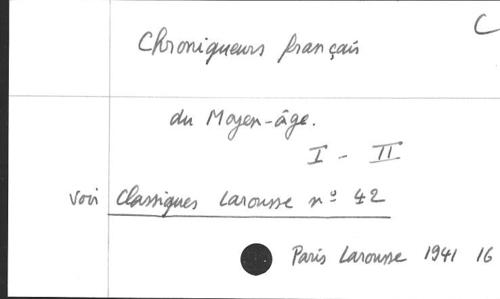 C
Chroniqueurs français
du Moyen-âge.
I - II
voir Classiques Larousse nº 42
Paris Larousse 1941 16